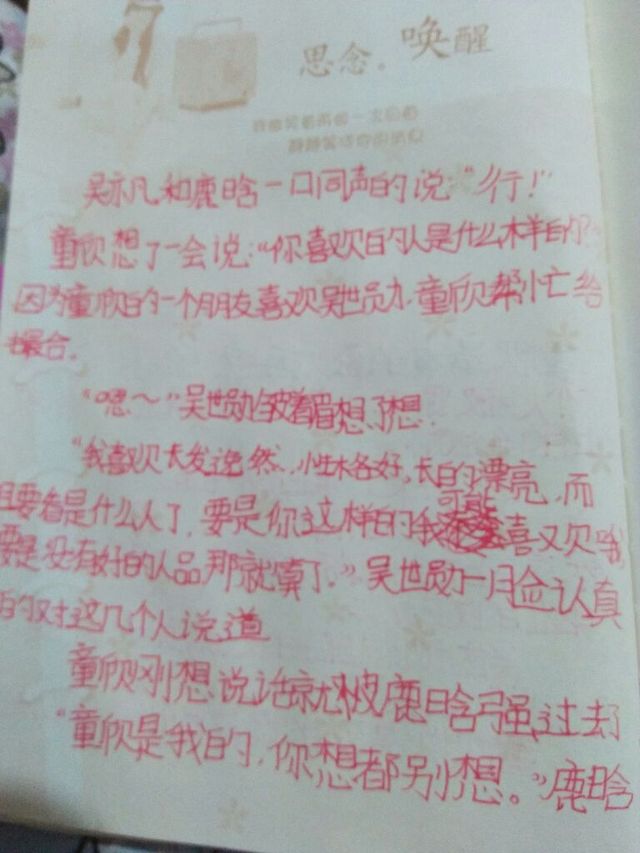 思念。唤醒
吴亦凡和鹿晗一口同声的说："行！"
童欣想了一会说："你喜欢的人是什么样的？"
因为童欣的一个朋友喜欢吴世勋，童欣帮忙给
撮合。
"嗯～"吴世勋皱着眉想了想.
"我喜欢长发逸然、小性格好，长的漂亮，而
且要看是什么人了，要是你这样的我可能喜欢哦
要是没有好的人品那就算了。"吴世勋一脸认真
的对这几个人说道
童欣刚想说话就被鹿晗强过去了
"童欣是我的，你想都别想。"鹿晗